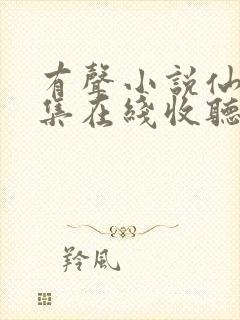 有聲小說仙
集在綫收聽
羚風